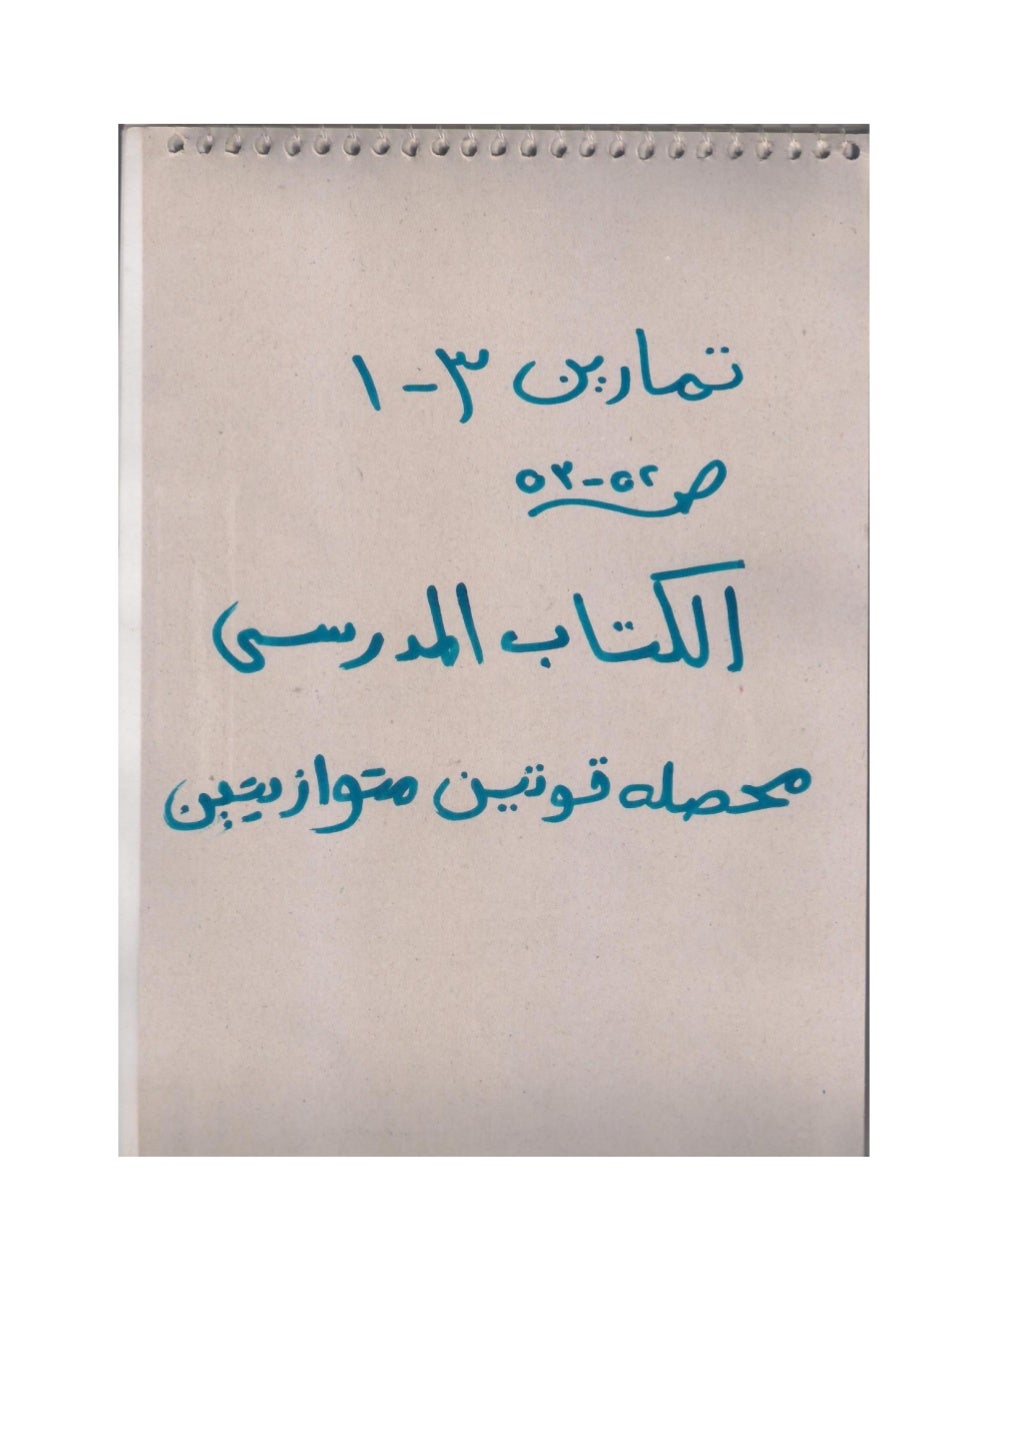 تمارين ٣-١
ص ٥٢-٥٣
الكتاب المدرسى
محصله قوتين متوازيتين